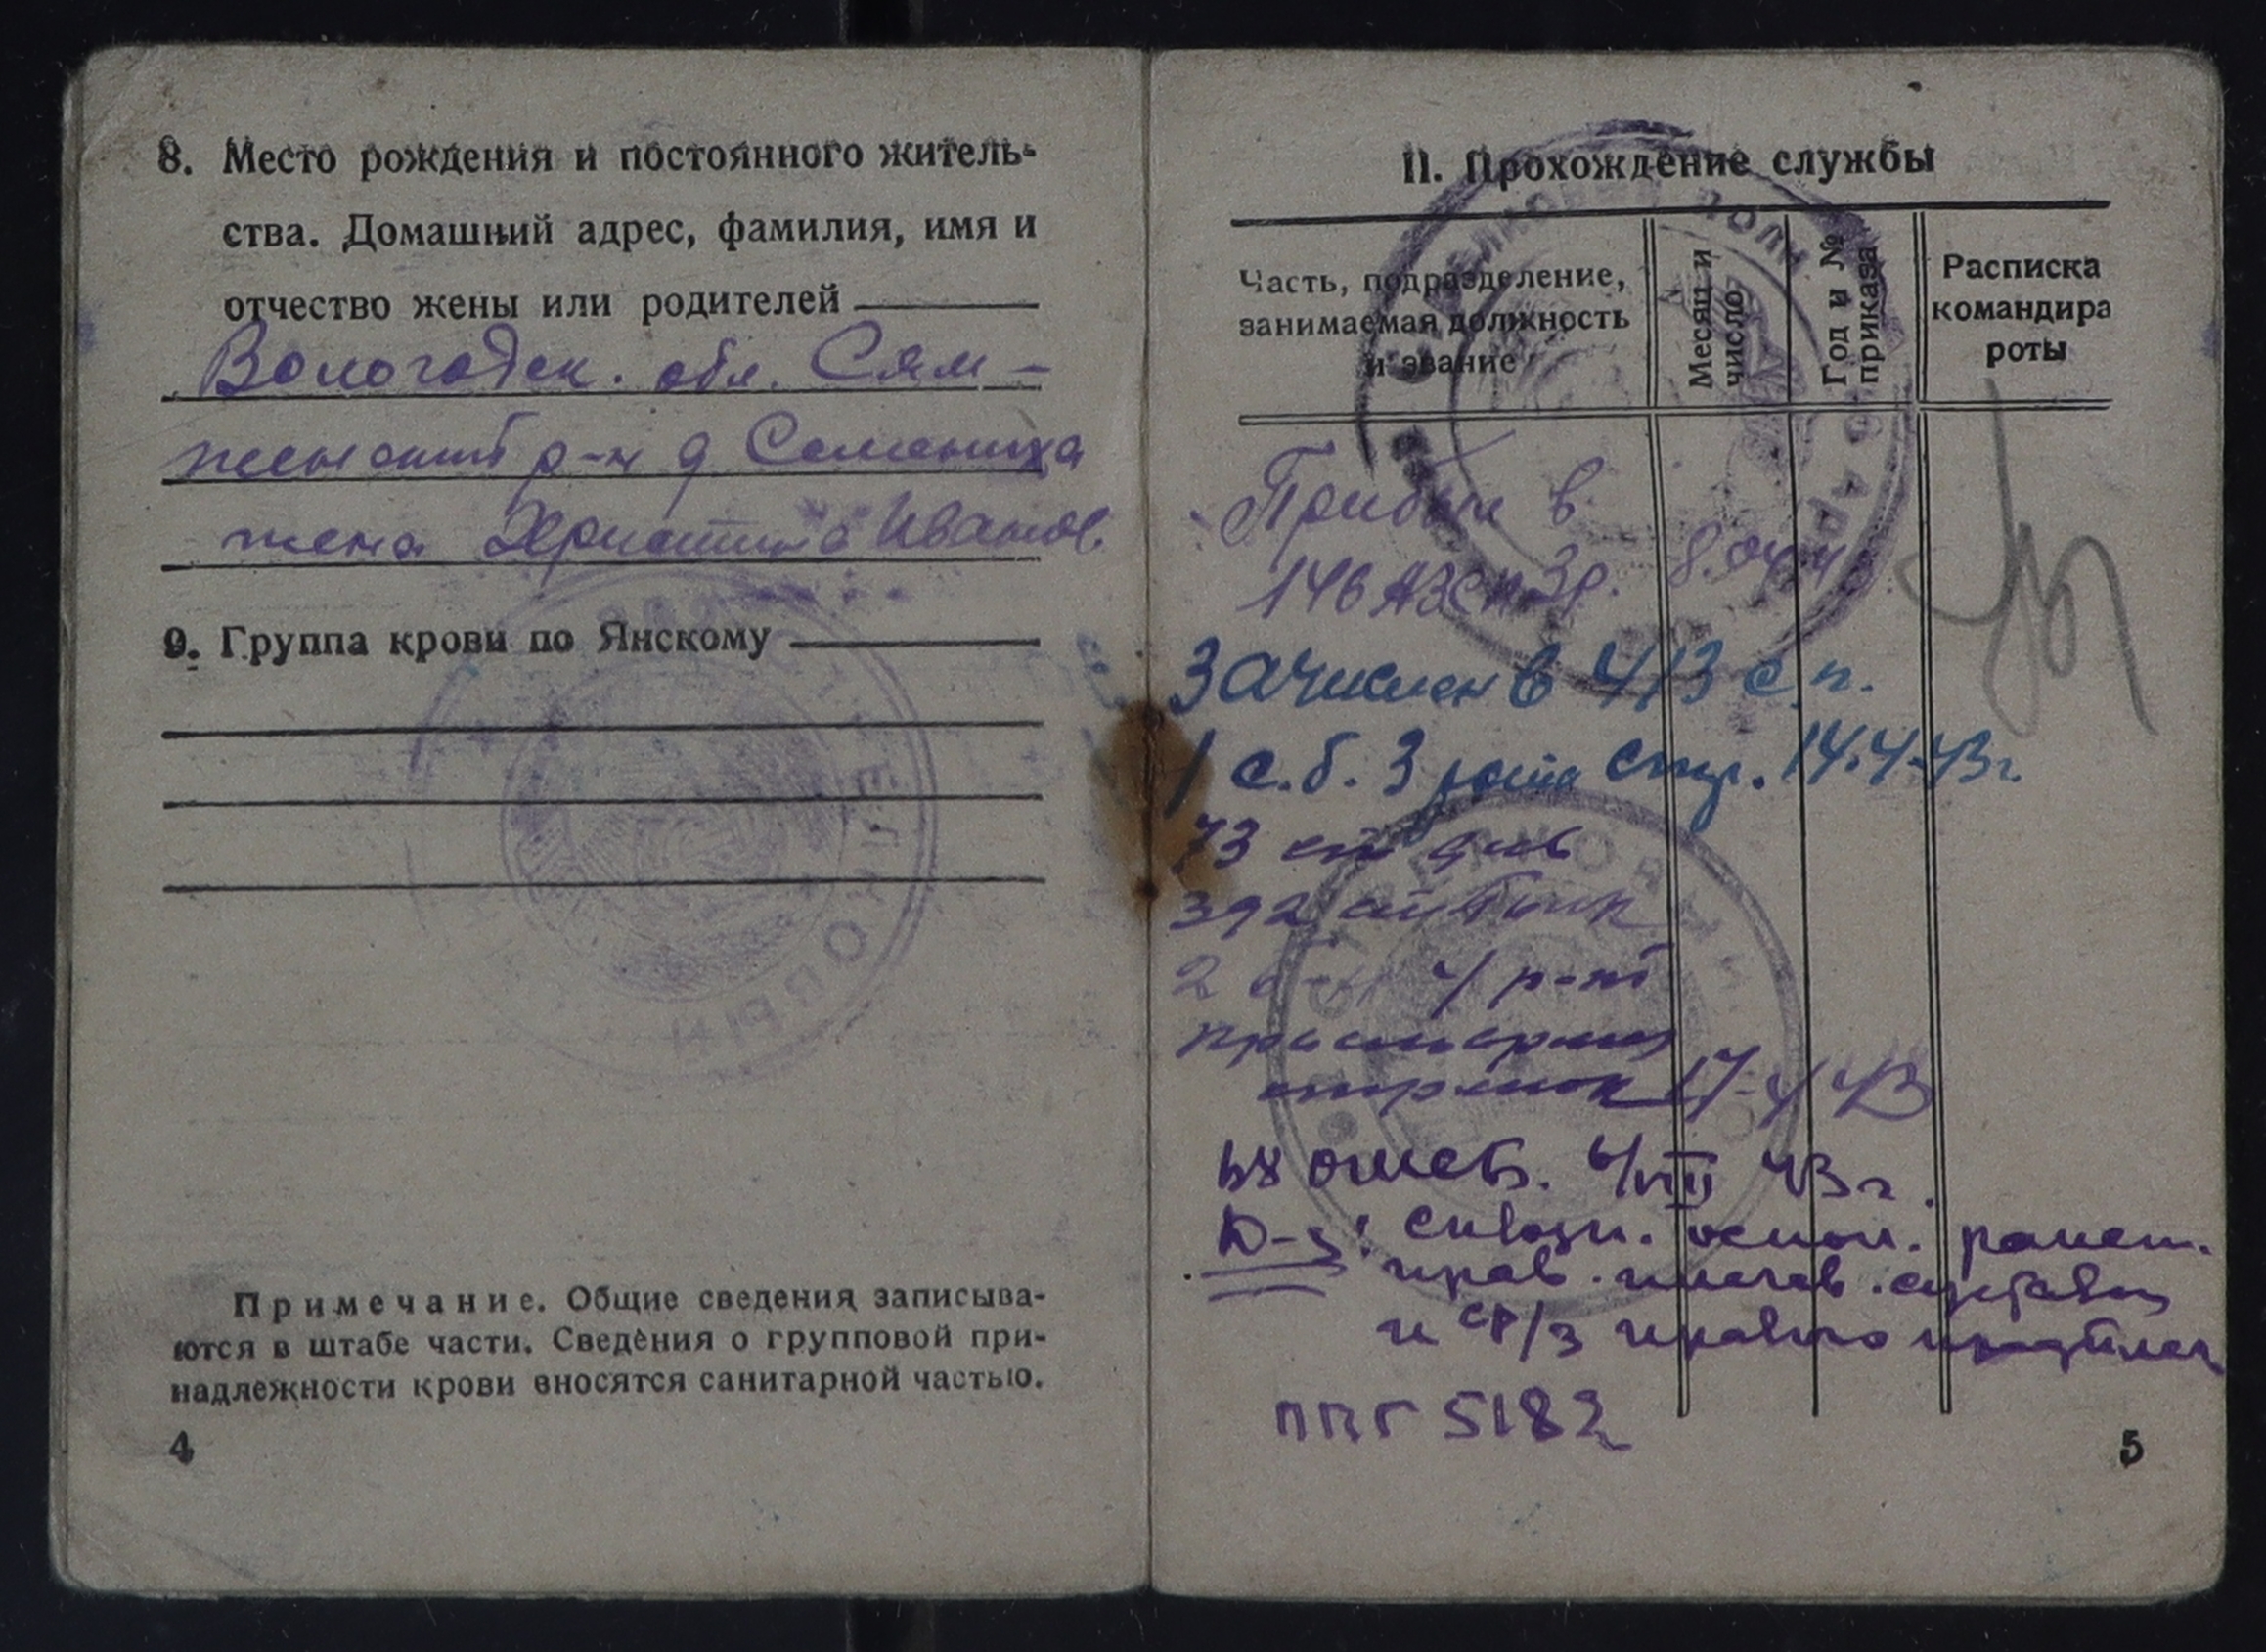 8. Место рождения и постоянного житель-
ства. Домашний адрес, фамилия, имя и
отчество жены или родителей
Вологодск. обл. Сям-
женский р-н д Семениха
жена Христина Иванов.
9. Группа крови по Янскому
Примечание. Общие сведения записыва-
ются в штабе части. Сведения о групповой при-
надлежности крови вносятся санитарной частью.
4
II. Прохождение службы
Часть, подразделение,
занимаемая должность
и звание
Месяц и
число
Год и №
приказа
Расписка
командира
роты
Прибыл в
146 АЗСП 3р.
Зачислен в 413 с.п.
1 с.б. 3 рота стр. 14.4.43г.
73 стр див
392 стр полк
2 б-н 4 р-та
стрелок 17-4 43
6/VIII 43г.
D-з: сквозн. оскол. ранен.
прав. плечев. сустава
и ср/з правого предплеч
ППГ 5182
5